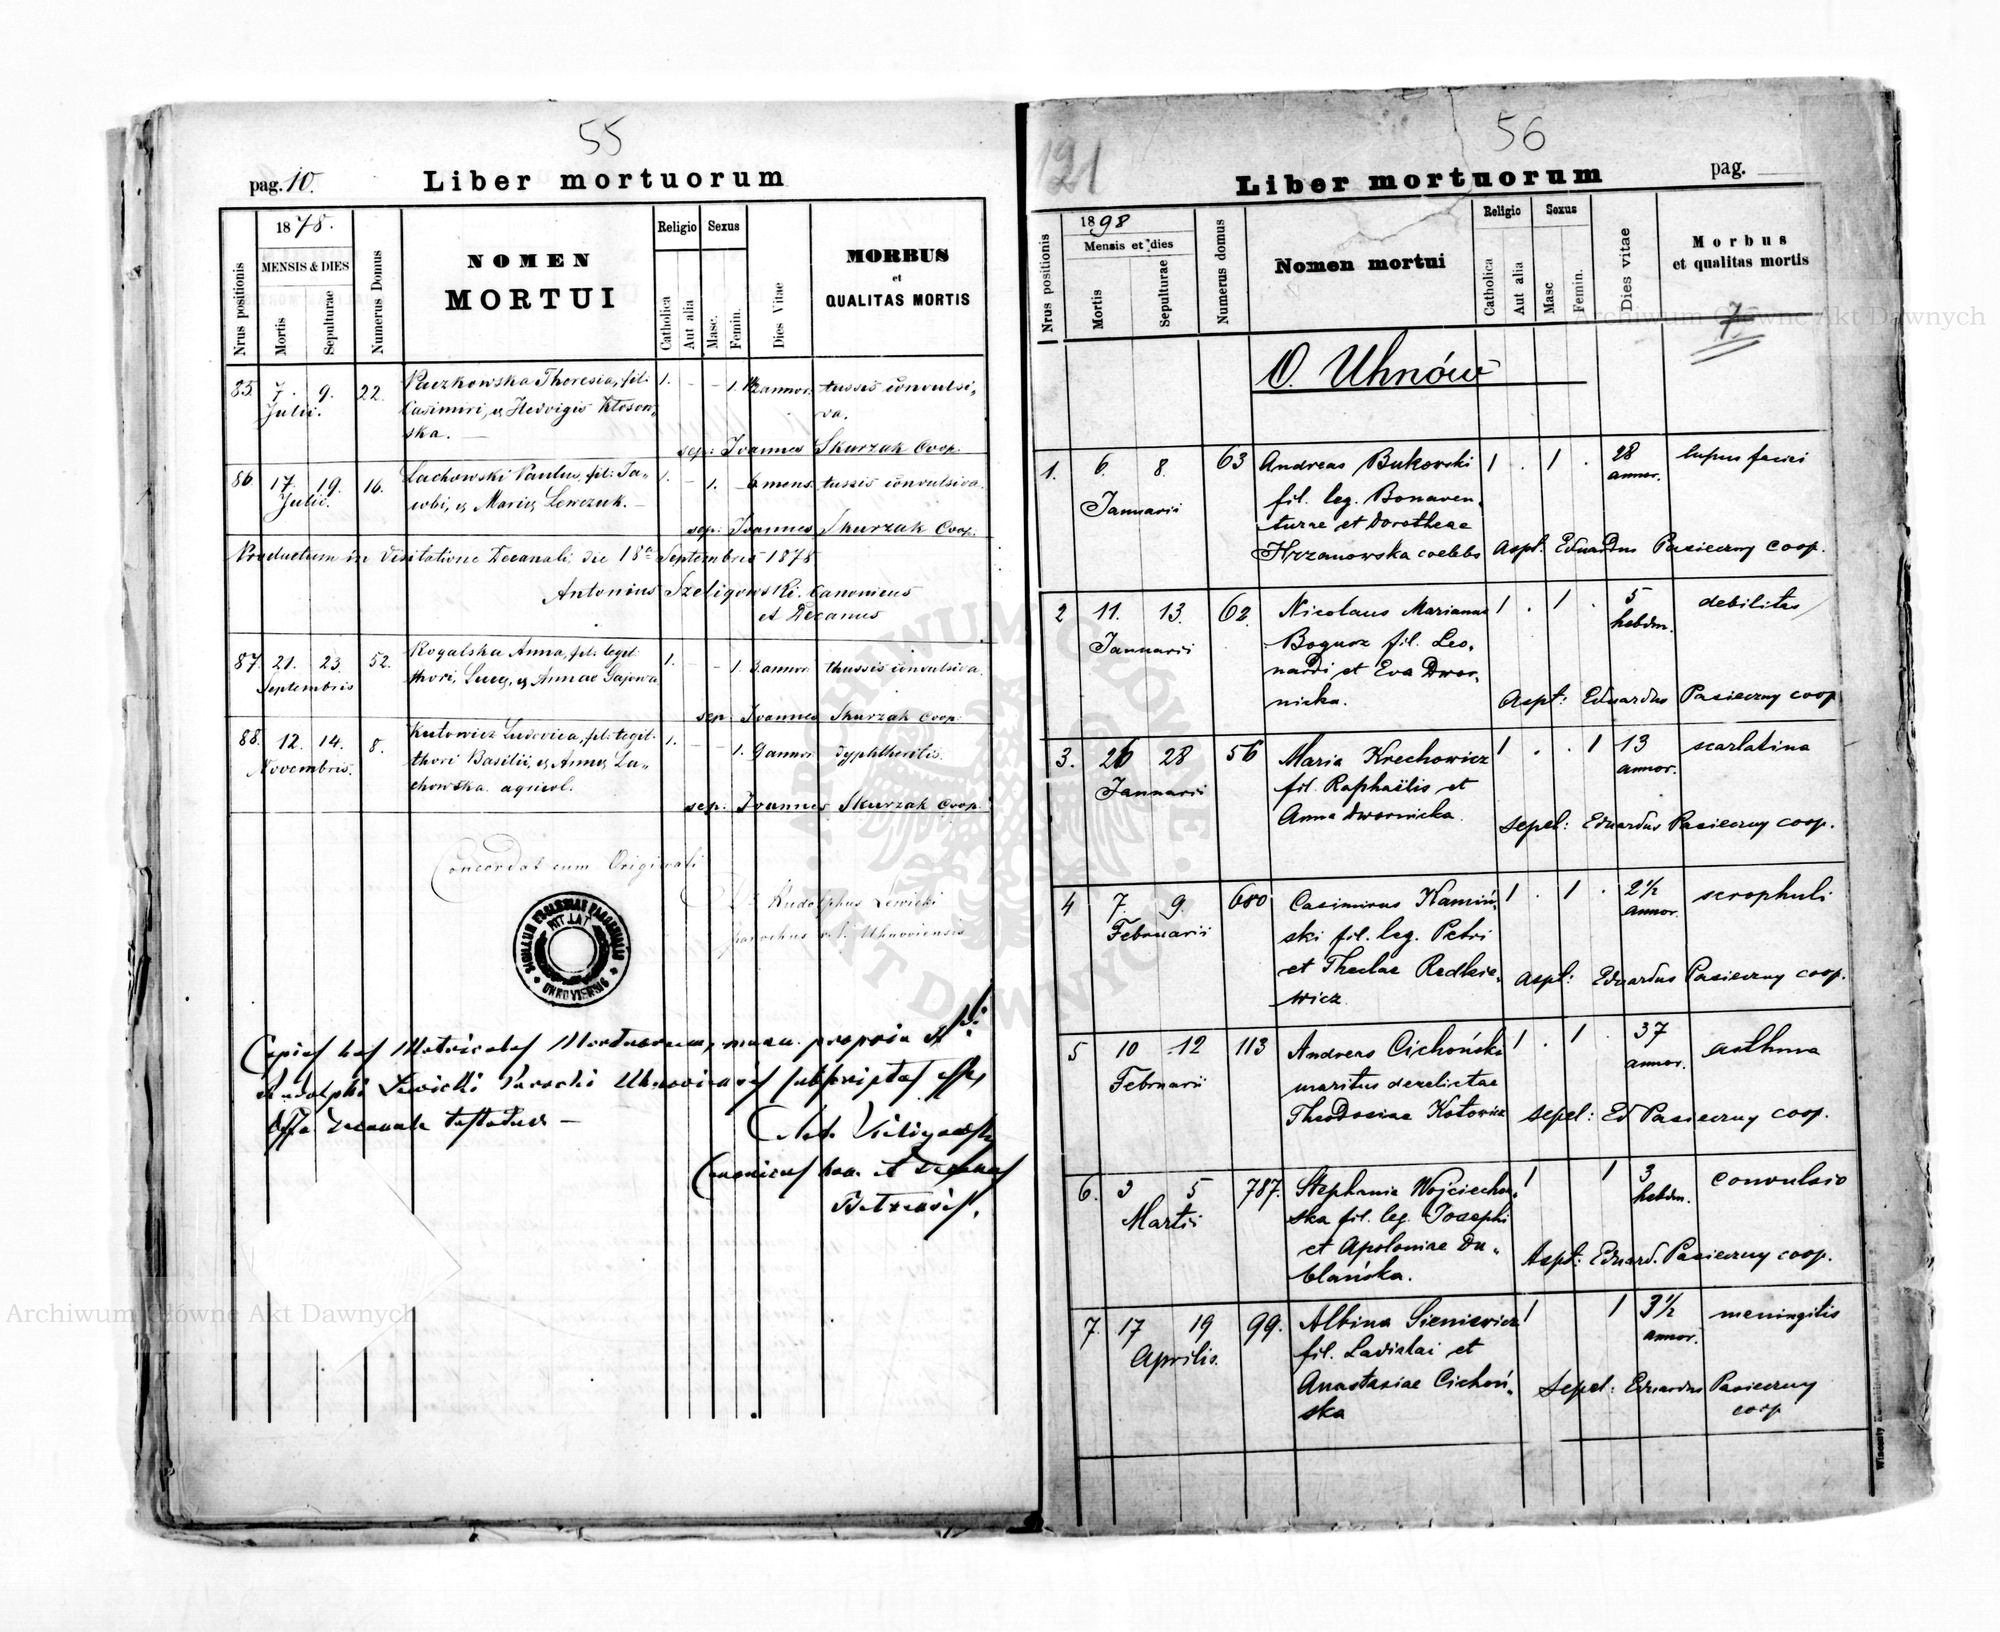 55
pag. 10.
Liber mortuorum
1878.
MENSIS & DIES
Nrus positionis
Mortis
Sepulturae
Numerus Domus
NOMEN
MORTUI
Religio
Sexus
Catholica
Aut alia
Masc.
Femin.
Dies Vitae
MORBUS
et
QUALITAS MORTIS
85. 7. 9. 22. Theresia, fil: 1. - - 1. annor. tussis convulsi-
Julii. Casimiri, et Hedvigis Kłosow- va.
ska. —
sep: Joannes Skurzak Coop.
86 17. 19. 16. Lachowski Paulus, fil: Ja- 1. - 1. - 6 mens. tussis convulsiva.
Julii. cobi, et Mariae Lewczuk. —
sep: Joannes Skurzak Coop.
Productum in Visitatione Decanali die 18a Septembris 1878
Antonius Szeligowski. Canonicus
et Decanus
87. 21. 23. 52. Rogalska Anna, fil: legit. 1. - - 1. 3. annor. thussis convulsiva.
Septembris thori, Lucae, et Annae Gajowa
sep: Joannes Skurzak Coop.
88. 12. 14. 8. Kutowicz Ludovica, fil: legit. 1. - - 1. 9 annor. dyphtheritis.
Novembris. thori Basilii, et Annae La-
chowska agricol.
sep: Joannes Skurzak Coop.
Concordat cum Originali
Rudolphus Lewicki
parochus r. l. Uhnoviensis
SIGILLUM ECCLESIAE PAROCHIALIS
RIT. LAT.
UHNOVIENSIS
Copias has Matricales Mortuorum, manu propria
Rudolphi Lewicki Parochi Uhnoviensis subscriptas esse
Offo Decanale testatur —
Ant. Szeligowski
Canonicus hon. et Decanus
Belzensis.
56
121
Liber mortuorum
pag.
1898
Mensis et dies
Nrus positionis
Mortis
Sepulturae
Numerus domus
Nomen mortui
Religio
Sexus
Catholica
Aut alia
Masc
Femin.
Dies vitae
Morbus
et qualitas mortis
7.
O. Uhnów
1. 6. 8. 63 Andreas Bukowski 1 . 1 . 28 lupus faciei
Januarii fil. leg. Bonaven- annor.
turae et Dorotheae
Hrzanowska coelebs Aspt. Eduardus Pasieczny coop.
2 11. 13. 62. Nicolaus Marianus 1 . 1 . 5 debilitas
Januarii Bogusz fil. Leo- hebdm.
nardi et Eva Dwor-
nicka. Aspt: Eduardus Pasieczny coop
3. 26 28 56 Maria Krechowicz 1 . . 1 13 scarlatina
Januarii fil. Raphaëlis et annor.
Anna Dwornicka. sepel: Eduardus Pasieczny coop.
4 7. 9. 680 Casimirus Kamiń- 1 . 1 . 2½ scrophuli
Februarii ski fil. leg. Petri annor.
et Theclae Redkie- Aspt: Eduardus Pasieczny coop.
wicz.
5 10 12 113 Andreas Cichoński 1 . 1 . 37 asthma
Februarii maritus derelictae annor.
Theodosiae Kotowicz sepel: Ed Pasieczny coop.
6. 3 5 787. Stephania Wojciechow- 1 1 3 convulsio
Martii ska fil. leg. Josephi hebdm.
et Apoloniae Du- Aspt: Eduard. Pasieczny coop.
blańska.
7. 17 19 99. Albina Sieniewicz 1 1 3½ meningitis
Aprilis. fil. Ladislai et annor.
Anastasiae Cichoń- Sepel: Eduardus Pasieczny
ska coop
Archiwum Główne Akt Dawnych
Archiwum Główne Akt Dawnych
ARCHIWUM GŁÓWNE AKT DAWNYCH